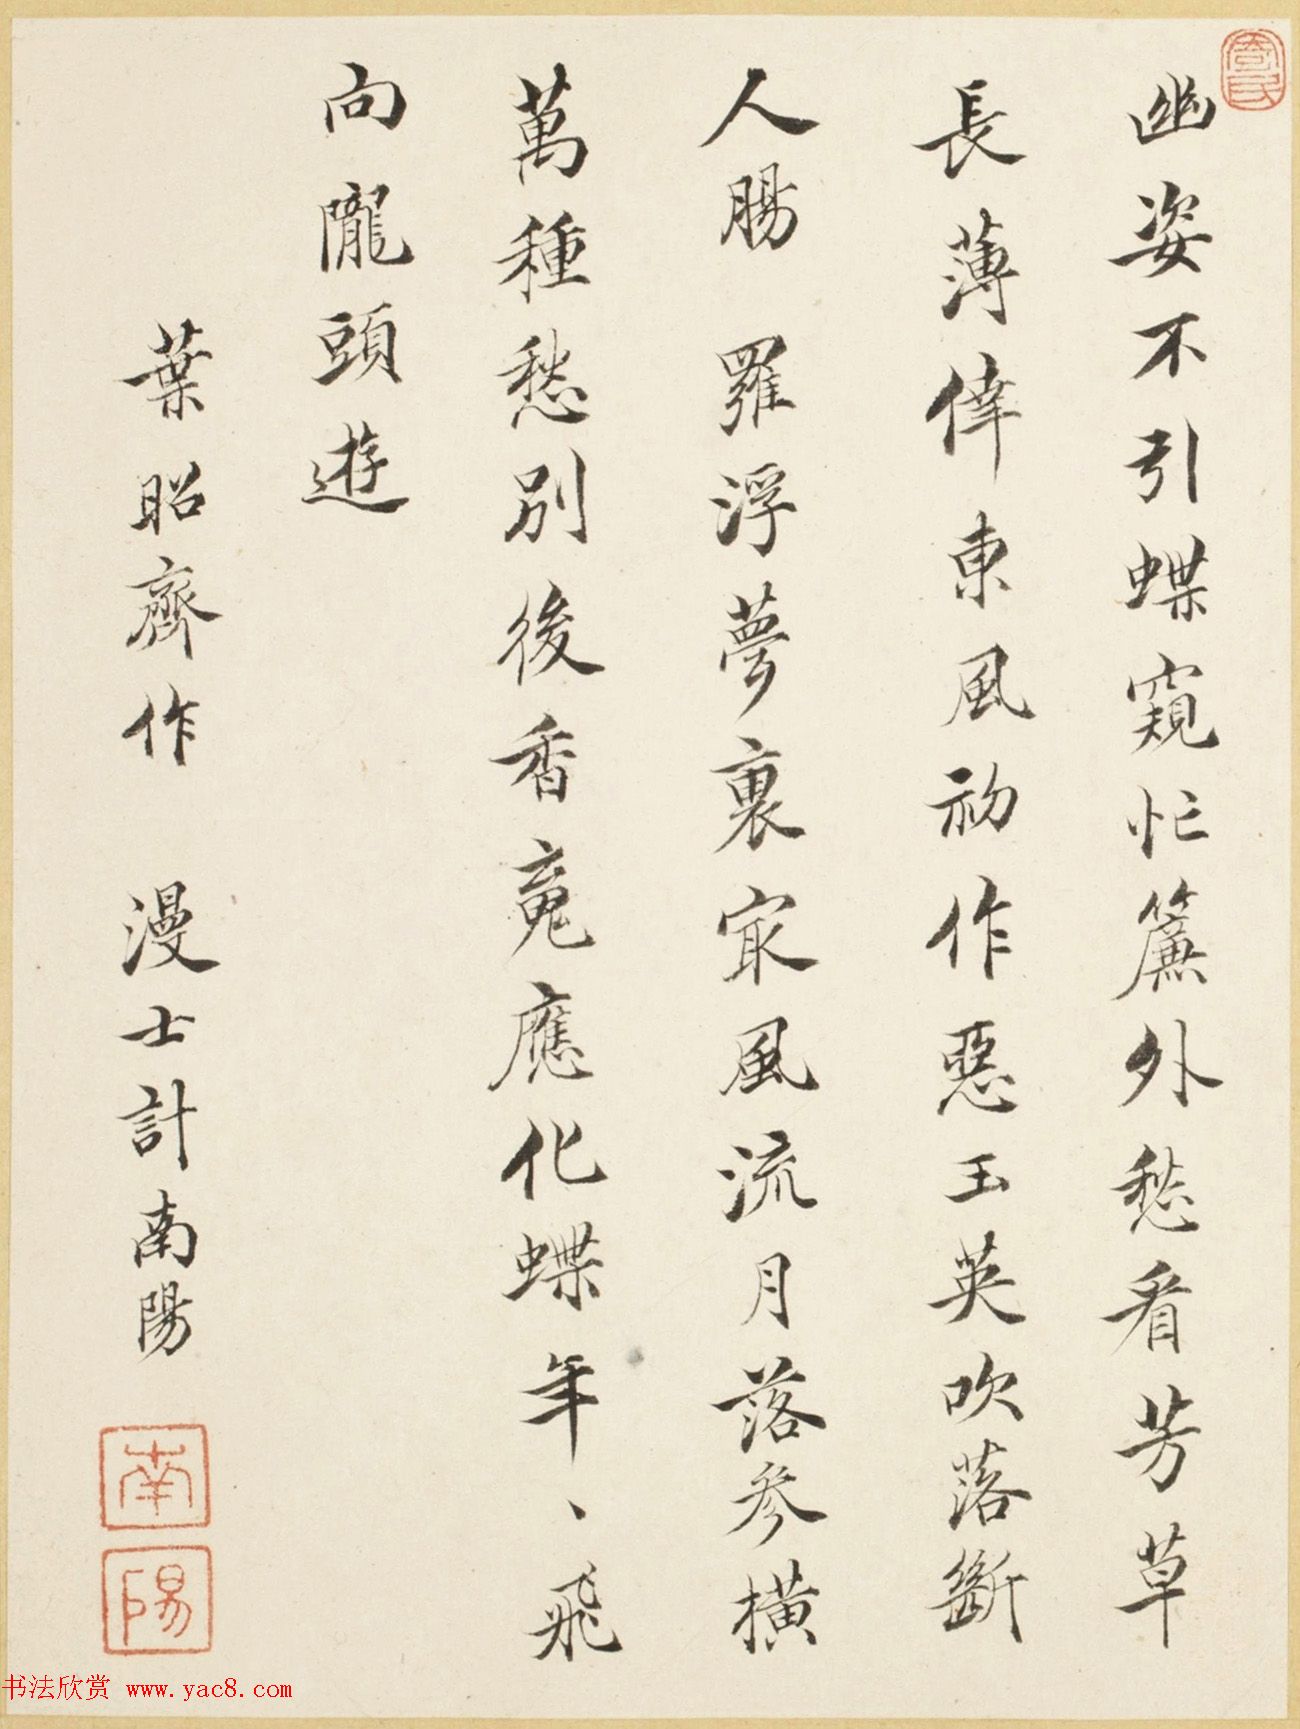 幽姿不引蝶窺忙簾外愁看芳草
長薄倖東風初作惡玉英吹落斷
人腸　羅浮夢裏最風流月落參橫
萬種愁別後香魂應化蝶年、飛
向隴頭遊
葉昭齊作　漫士計南陽
南
陽
书法欣赏 www.yac8.com